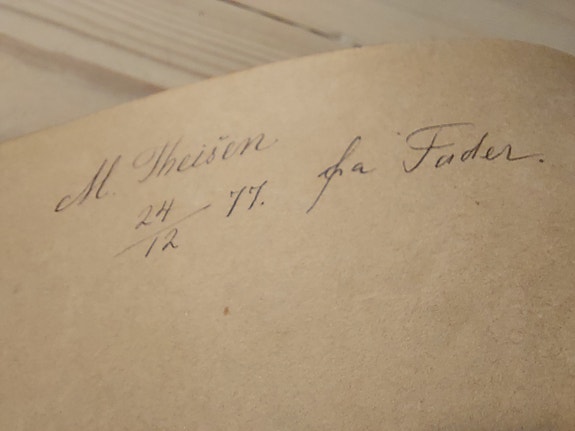 M. Theisen
24/12 77. fra Fader.